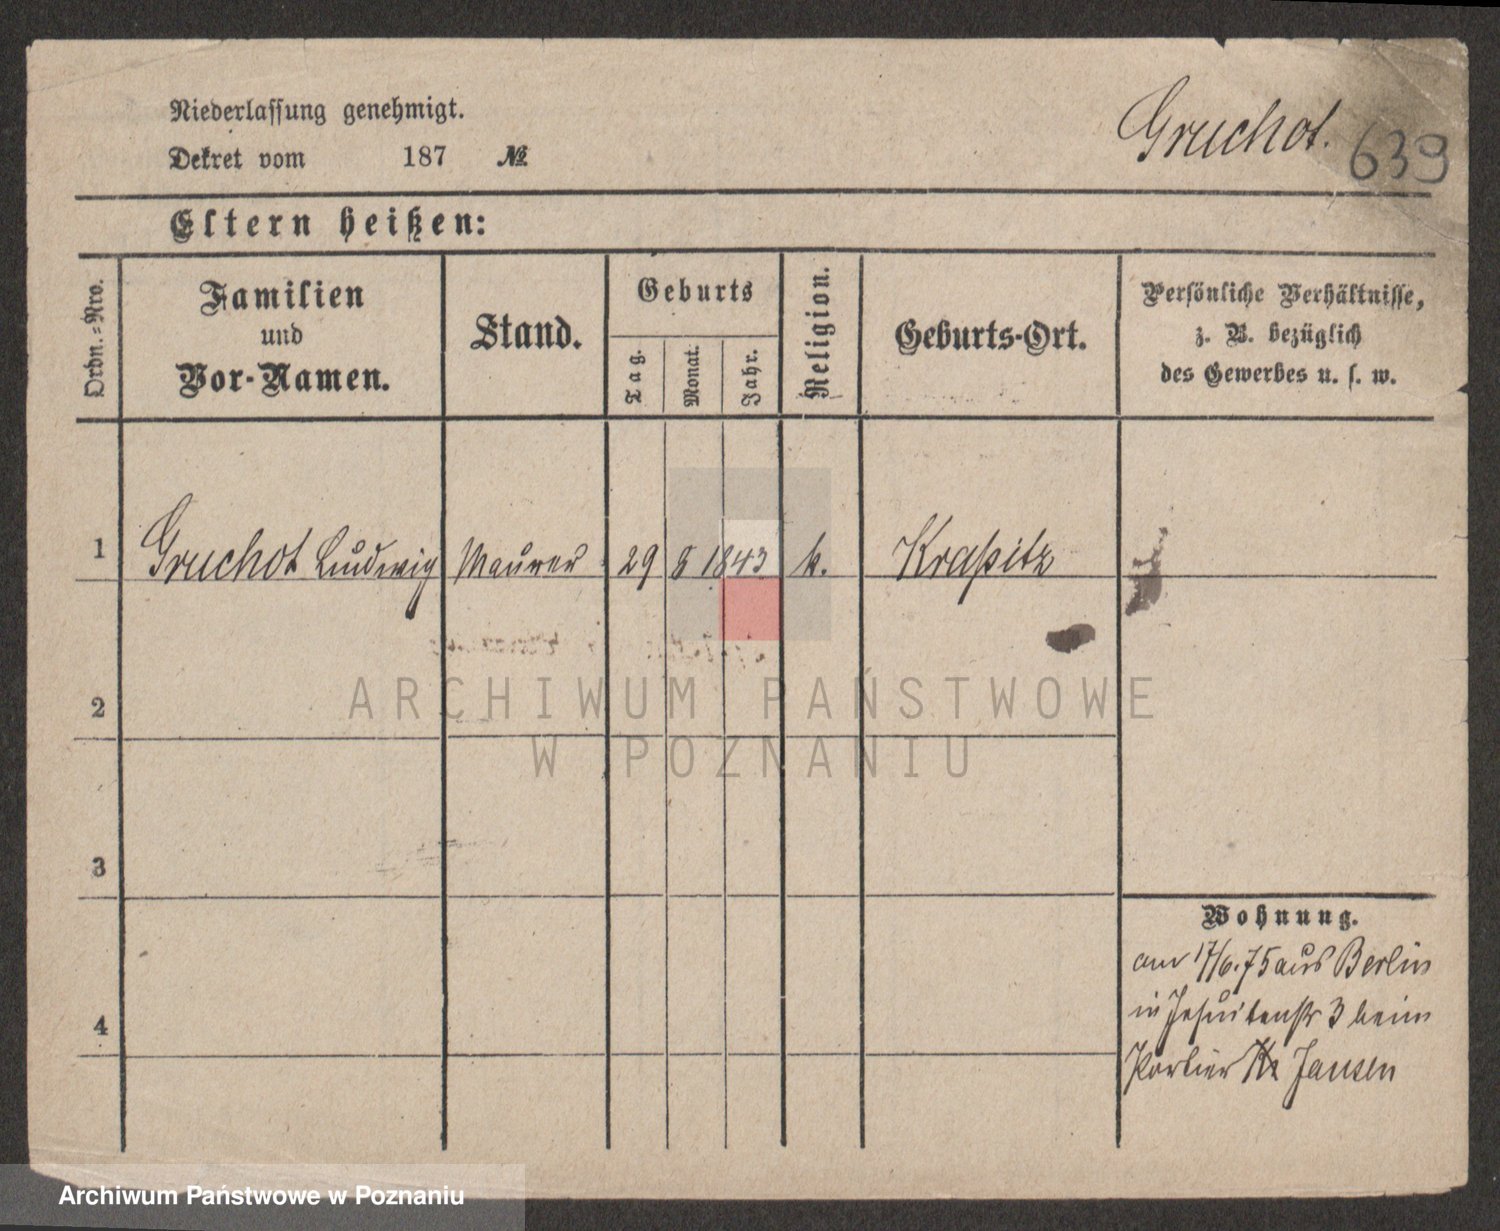 Niederlassung genehmigt.
Dekret vom 187 №
Gruchot. 639
Eltern heißen:
Ordn.-Nro.
Familien
und
Vor-Namen.
Stand.
Geburts
Tag.
Monat.
Jahr.
Religion.
Geburts-Ort.
Persönliche Verhältnisse,
z. B. bezüglich
des Gewerbes u. s. w.
1 Gruchot Ludwig Maurer 29 8 1843 k. Kraßitz
2
3
4
Wohnung.
am 17/6.75 aus Berlin
in Jesuitenstr 3 beim
Portier Jansen
ARCHIWUM PAŃSTWOWE
W POZNANIU
Archiwum Państwowe w Poznaniu